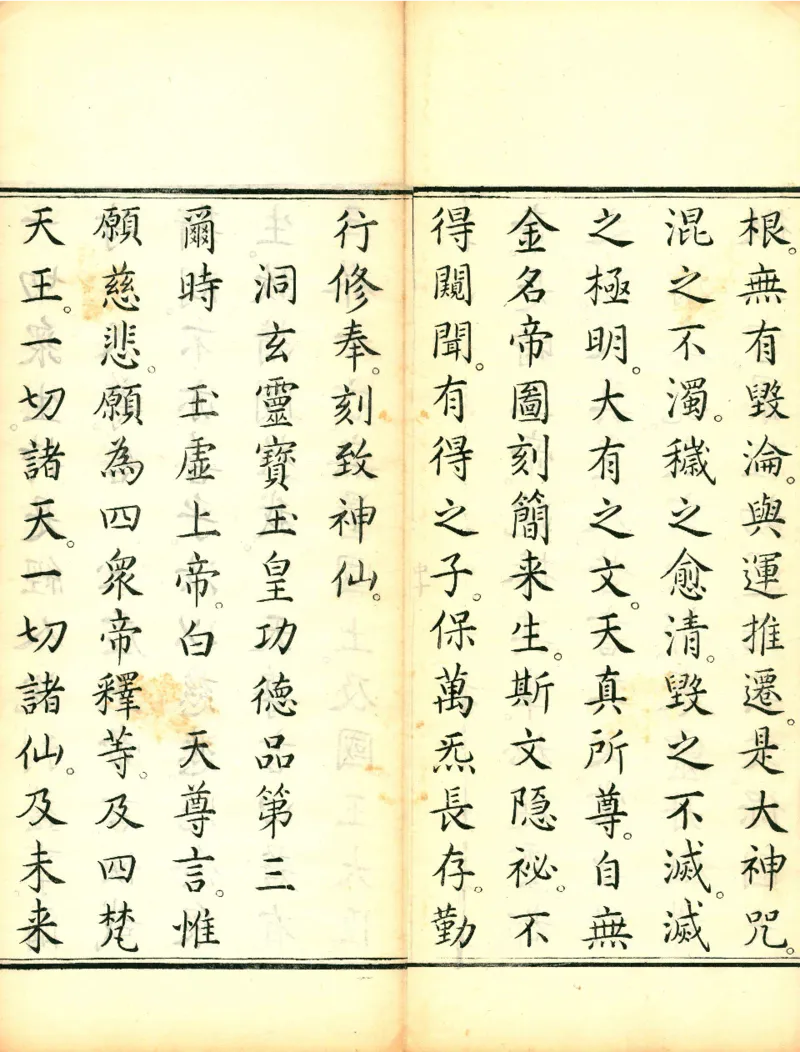 根。無有毀淪。與運推遷。是大神咒。
混之不濁。穢之愈清。毀之不滅。滅
之極明。大有之文。天真所尊。自無
金名帝圖刻簡来生。斯文隐祕。不
得闚聞。有得之子。保萬炁長存。勤
行修奉。刻致神仙。
洞玄靈寶玉皇功德品第三
爾時　玉虛上帝。白　天尊言。惟
願慈悲。願為四衆帝釋等。及四梵
天王。一切諸天。一切諸仙。及未来